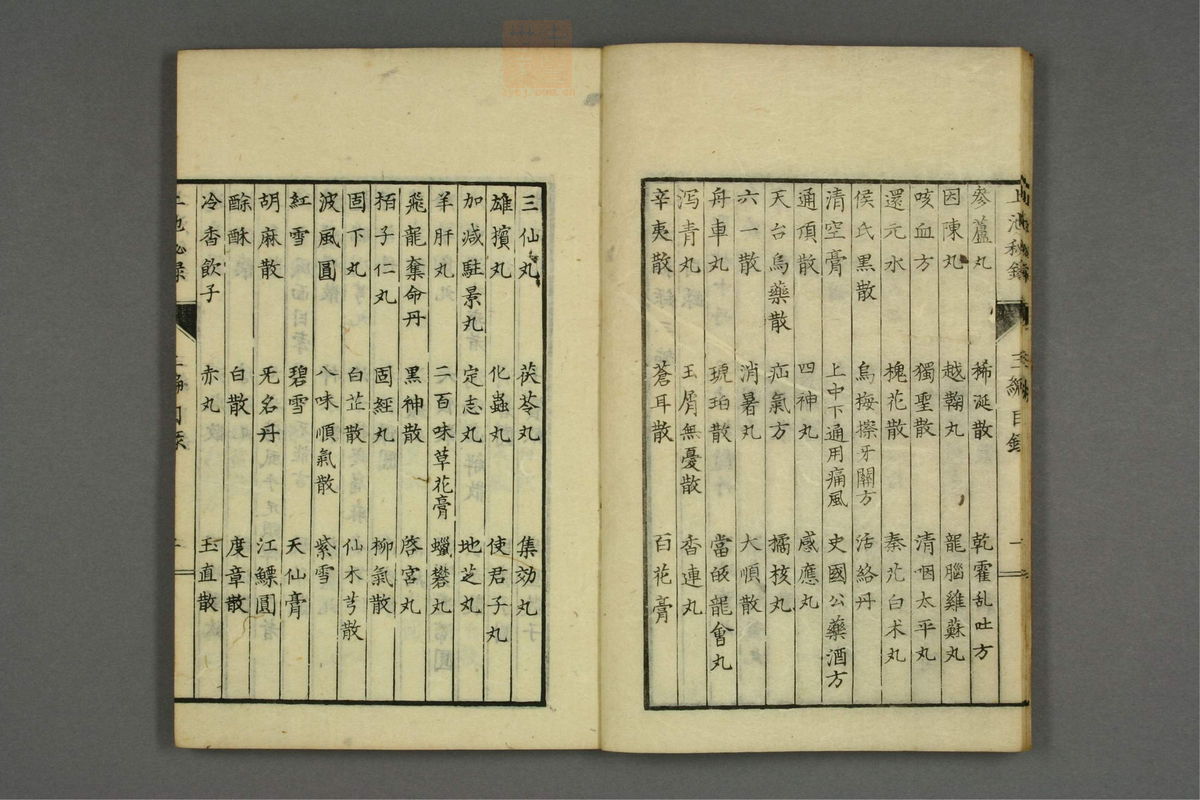 參蘆丸 稀涎散 乾霍乱吐方
因陳丸 越鞠丸 龍腦雞蘇丸
咳血方 獨聖散 清咽太平丸
還元水 槐花散 秦艽白术丸
侯氏黒散 烏梅擦牙關方 活絡丹
清空膏 上中下通用痛風 史國公藥酒方
通頂散 四神丸 感應丸
天台烏藥散 疝氣方 橘核丸
六一散 消暑丸 大順散
舟車丸 琥珀散 當皈龍會丸
泻青丸 玉屑無憂散 香連丸
辛夷散 蒼耳散 百花膏
三仙丸 茯苓丸 集効丸
雄擯丸 化蟲丸 使君子丸
加减駐景丸 定志丸 地芝丸
羊肝丸 二百味草花膏 蠟礬丸
飛龍奪命丹 黒神散 啓宮丸
栢子仁丸 固經丸 柳氣散
固下丸 白芷散 仙木芎散
波風圓 八味順氣散 紫雪
紅雪 碧雪 天仙膏
胡麻散 旡名丹 江鰾圓
酴酥 白散 度章散
冷香飲子 赤丸 玉直散